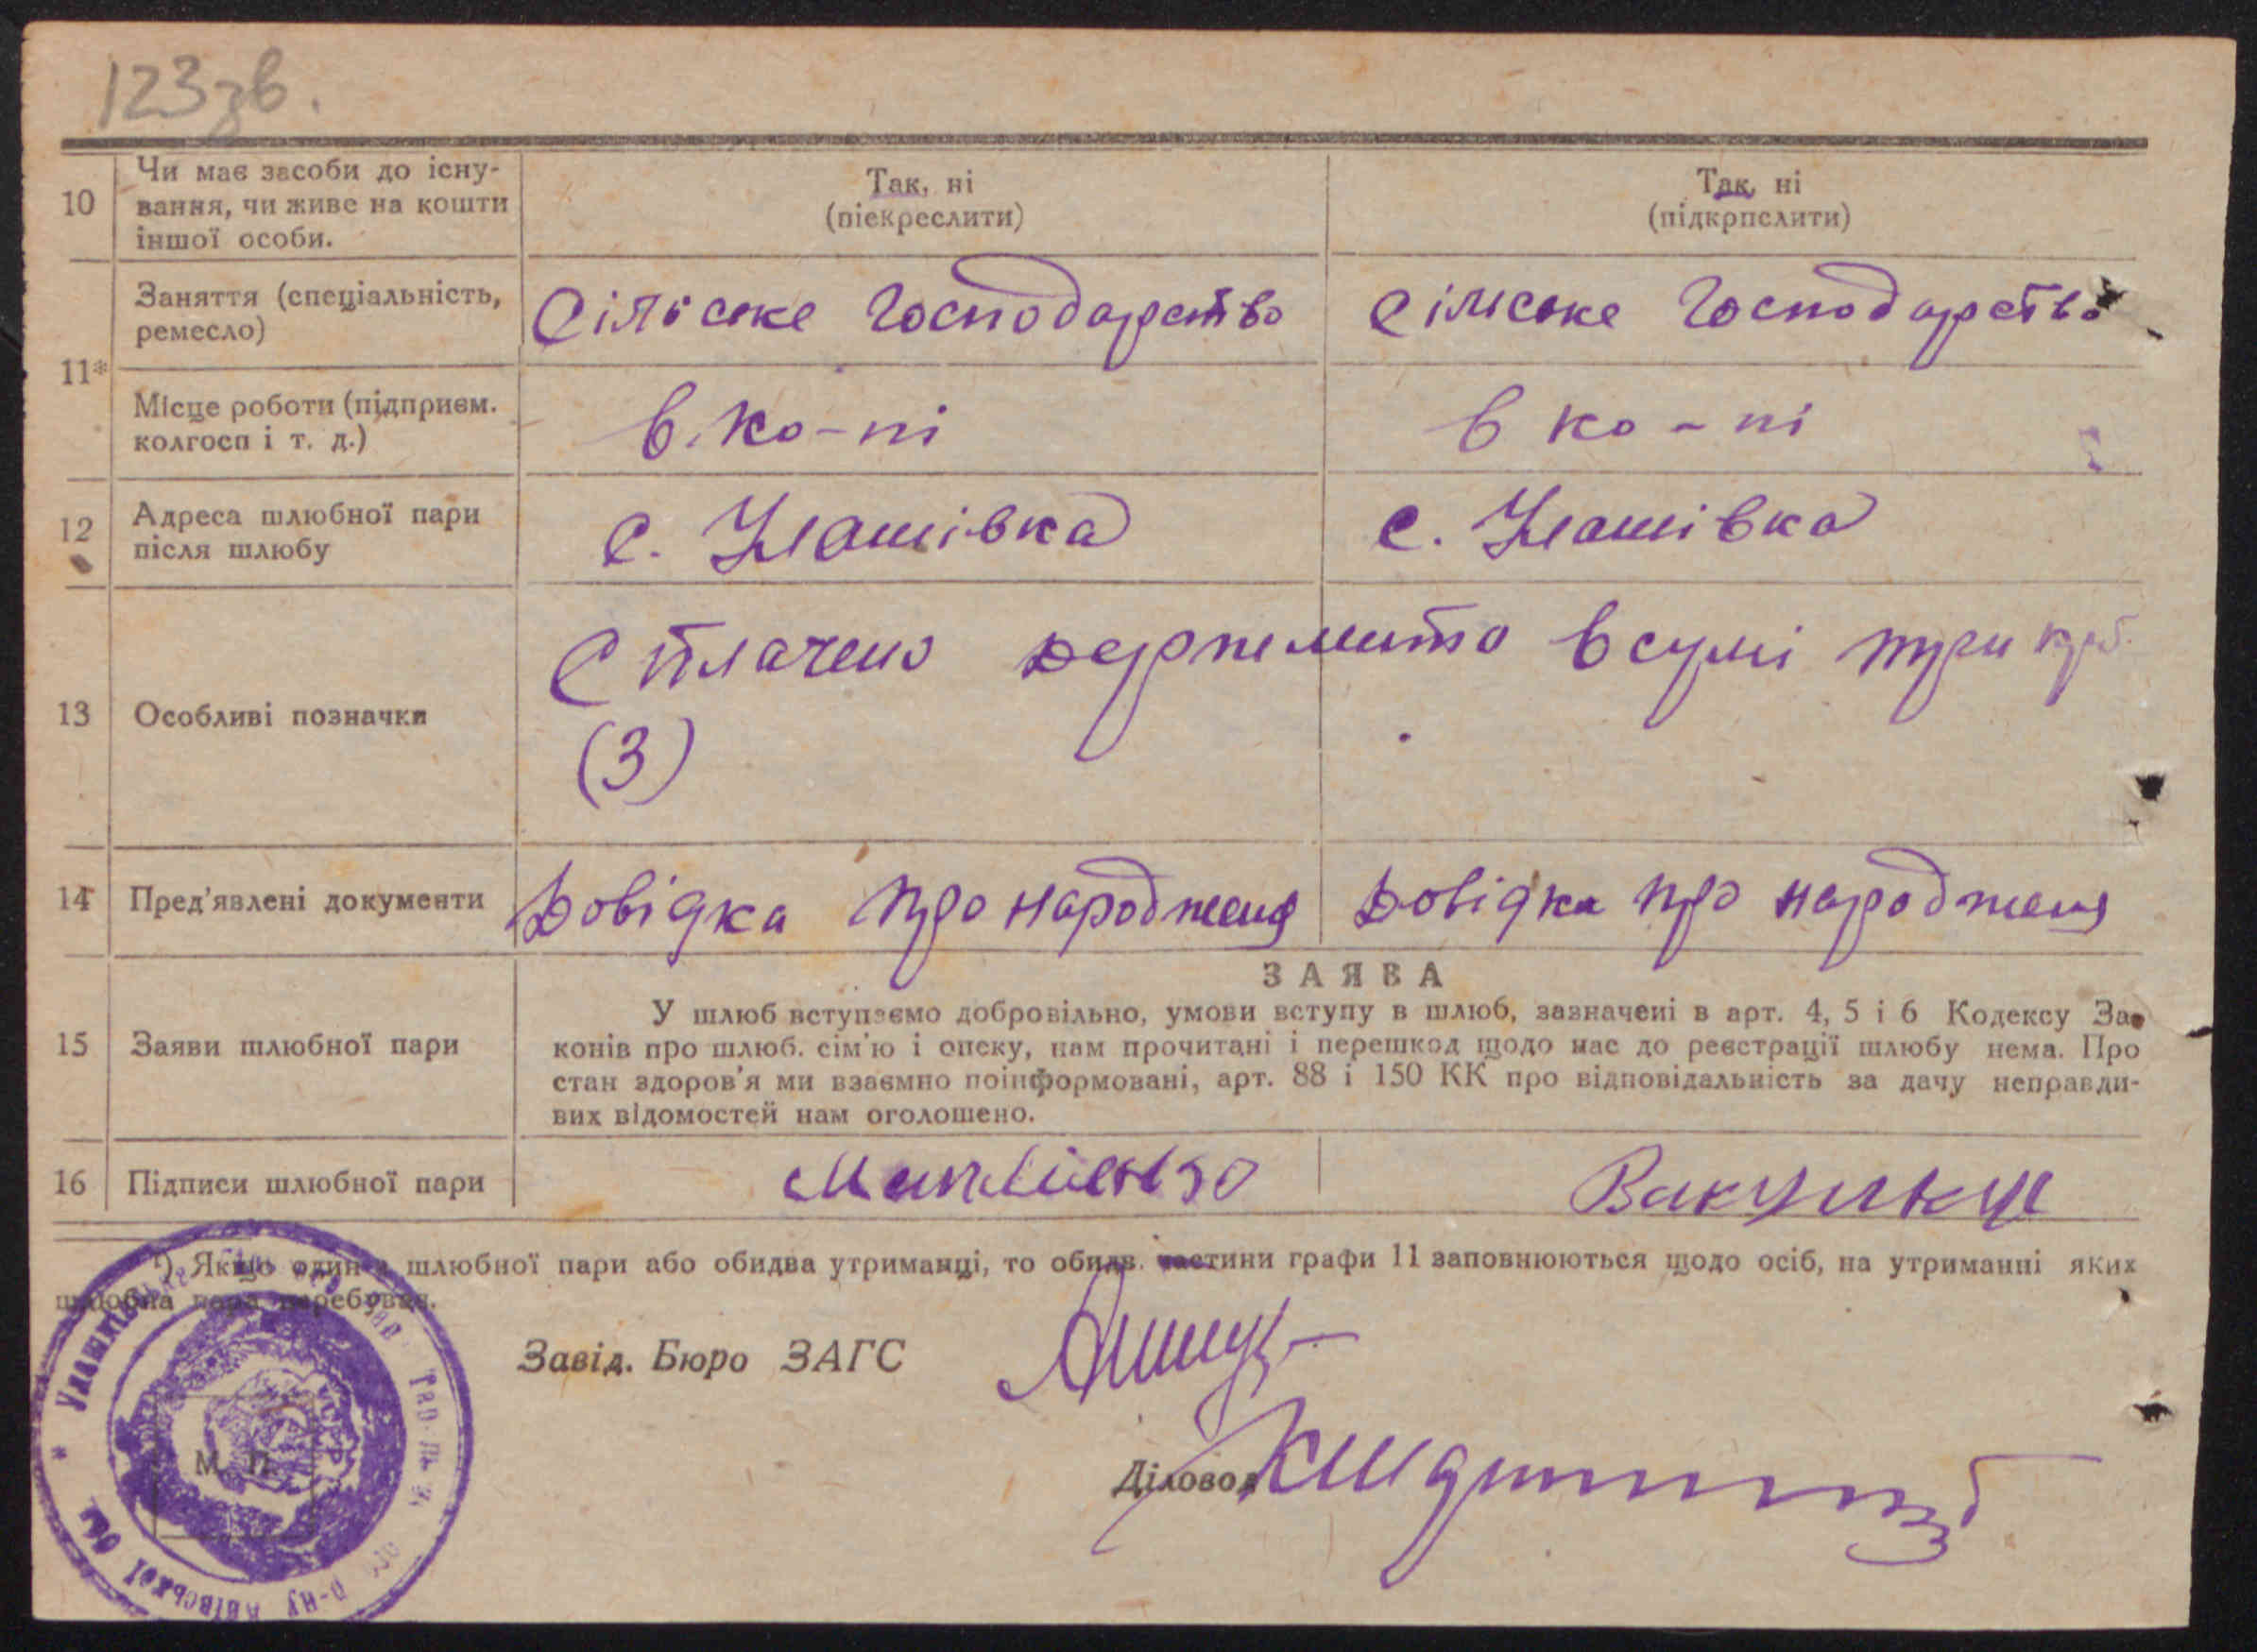 123зв.
10
Чи має засоби до існу-
вання, чи живе на кошти
іншої особи.
Так, ні
(піекреслити)
Так, ні
(підкрпслити)
11*
Заняття (спеціальність,
ремесло)
Сільське Господарство
Сільське Господарство
Місце роботи (підприєм.
колгосп і т. д.)
в. ко-пі
в ко-пі
12
Адреса шлюбної пари
після шлюбу
с. Улашівка
с. Улашівка
13
Особливі позначки
Сплачено держмито в сумі три крб.
(3)
14
Пред'явлені документи
Довідка про народженя
Довідка про народженя
15
Заяви шлюбної пари
ЗАЯВА
У шлюб вступаємо добровільно, умови вступу в шлюб, зазначені в арт. 4, 5 і 6 Кодексу За-
конів про шлюб. сім'ю і опеку, нам прочитані і перешкод щодо нас до реєстрації шлюбу нема. Про
стан здоров'я ми взаємно поінформовані, арт. 88 і 150 КК про відповідальність за дачу неправди-
вих відомостей нам оголошено.
16
Підписи шлюбної пари
*) Якщо один з шлюбної пари або обидва утриманці, то обидв. частини графи 11 заповнюються щодо осіб, на утриманні яких
шлюбна пара перебуває.
Завід. Бюро ЗАГС
Діловод
М. П.
р-ну Київської обл.
УСРР